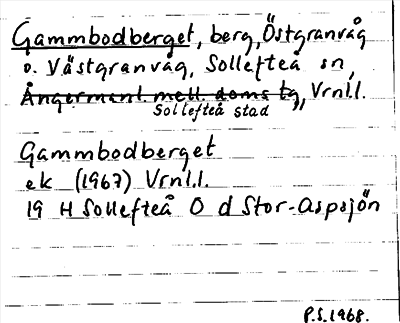 Gammbodberget, berg, Östgranvåg
o. Västgranvåg, Sollefteå sn,
Ångermanl. mell. doms tg, Vrnl.l.
Sollefteå stad
Gammbodberget
ek (1967) Vrnl.l.
19 H Sollefteå O d Stor-Aspsjön
P.S. 1968.